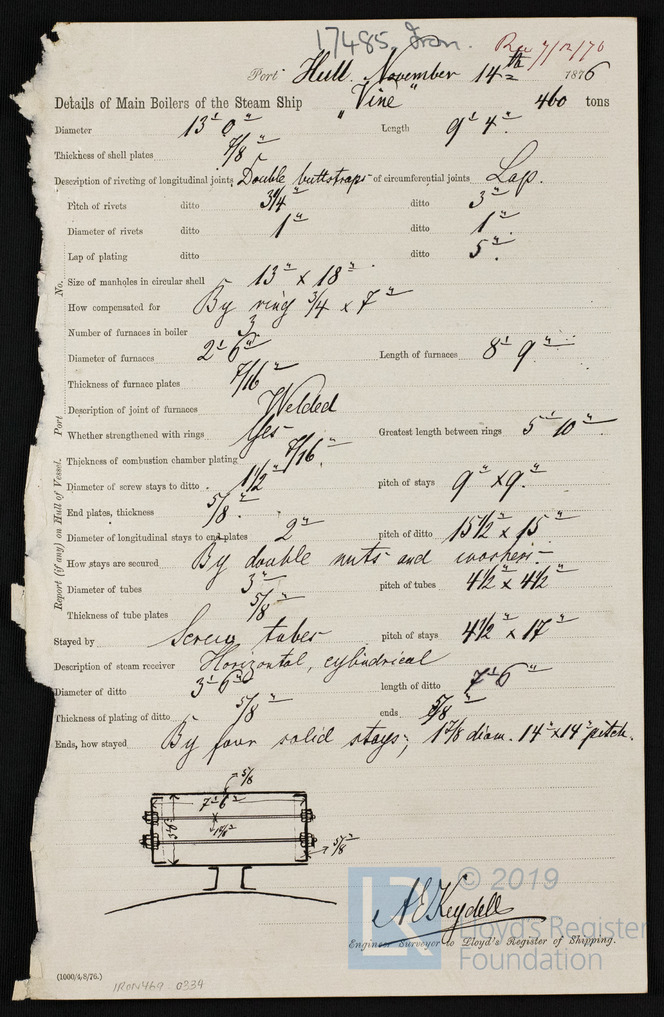 17485 Iron.
Rec 7/12/76
Port Hull. November 14th 1876
Details of Main Boilers of the Steam Ship "Vine" 460 tons
Diameter 13' 0" Length 9' 4"
Thickness of shell plates 7/8"
Description of riveting of longitudinal joints Double buttstraps of circumferential joints Lap.
Pitch of rivets ditto 3 1/4" ditto 3"
Diameter of rivets ditto 1" ditto 1"
Lap of plating ditto ditto 5"
No. Size of manholes in circular shell 13" x 18"
How compensated for By ring 3/4 x 7"
Number of furnaces in boiler 3
Diameter of furnaces 2' 6" Length of furnaces 8' 9"
Thickness of furnace plates 7/16"
Description of joint of furnaces Welded
Port Whether strengthened with rings Yes Greatest length between rings 5' 10"
Thickness of combustion chamber plating 7/16"
Diameter of screw stays to ditto 1 1/2" pitch of stays 9" x 9"
End plates, thickness 5/8"
Diameter of longitudinal stays to end plates 2" pitch of ditto 15 1/2" x 15"
How stays are secured By double nuts and washers
Diameter of tubes 3" pitch of tubes 4 1/2" x 4 1/2"
Thickness of tube plates 5/8"
Report (if any) on Hull of Vessel.
Stayed by Screw tubes pitch of stays 4 1/2" x 17"
Description of steam receiver Horizontal, cylindrical
Diameter of ditto 3' 6" length of ditto 7' 6"
Thickness of plating of ditto 5/8" ends 5/8"
Ends, how stayed By four solid stays; 1 7/8 diam. 14" x 14" pitch.
5/8
7' 6"
3' 6"
5/8"
© 2019
LR
A E Keydell
Lloyd's Register
Engineer Surveyor to Lloyd's Register of Shipping.
Foundation
(1000/4/8/76.)
IRON469-0334